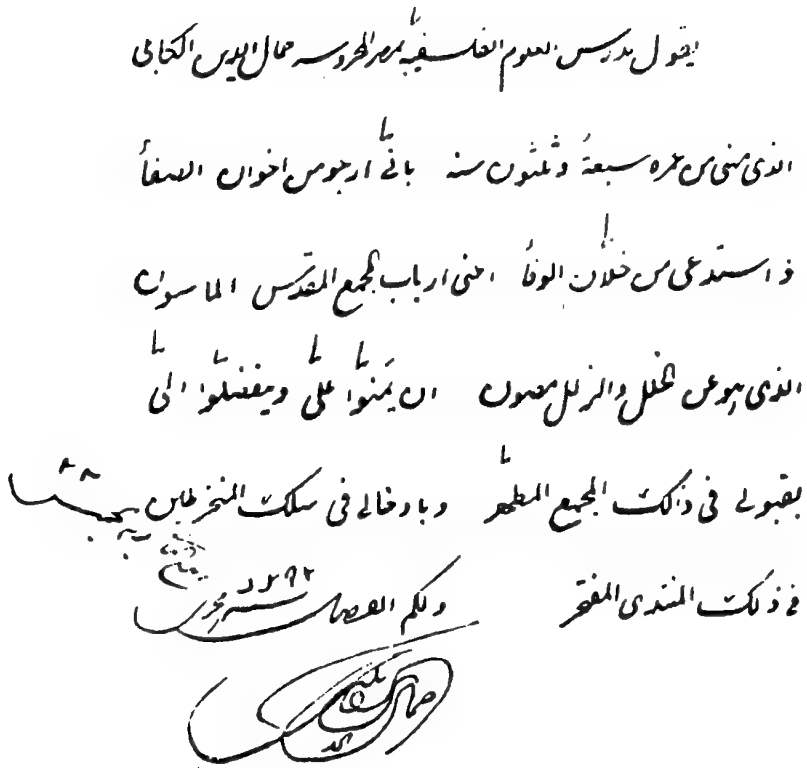 يقول مدرس العلوم الفلسفية بمصر المحروسه جمال الدين الكابلى
الذى مضى من عمره سبعة وثلثون سنه بانّى ارجو من اخوان الصفأ
واستدعى من خلّان الوفأ اعنى ارباب المجمع المقدس الماسون
الذى هو عن الخلل والزلل مصون ان يَمنّوا علىّ ويتفضلّوا الىّ
بقبولى فى ذالك المجمع المطهّر وبادخالى فى سلك المنخرطين
فى ذلك المنتدى المفتخر ولكم الفضل
جمال الدين